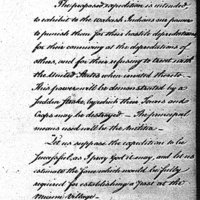 The proposed expedition is intended,
to exhibit to the Wabash Indians our power
to punish them for their hostile depredations,
for their conniving at the depredations of
others, and for their refusing to treat with
the United States when invited thereto.
This power will be demonstrated by a
sudden stroke, by which their Towns and
Crops may be destroyed. The principal
means used will be the Militia.
Let us suppose the expedition to be
successful, as I pray God it may, and let us
estimate the force which would be fully
required for establishing a post at the
Miami Village.